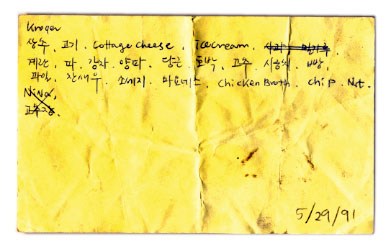 Kroger
상추, 고기, Cottage cheese, Icecream,
계란, 파, 감자, 양파, 당근, 호박, 고추, 시금치, 빵,
과일, 잔새우, 소세지, 마요네스, Chicken Broth, chip, Nut.
NiNa,
고추장,
5/29/91